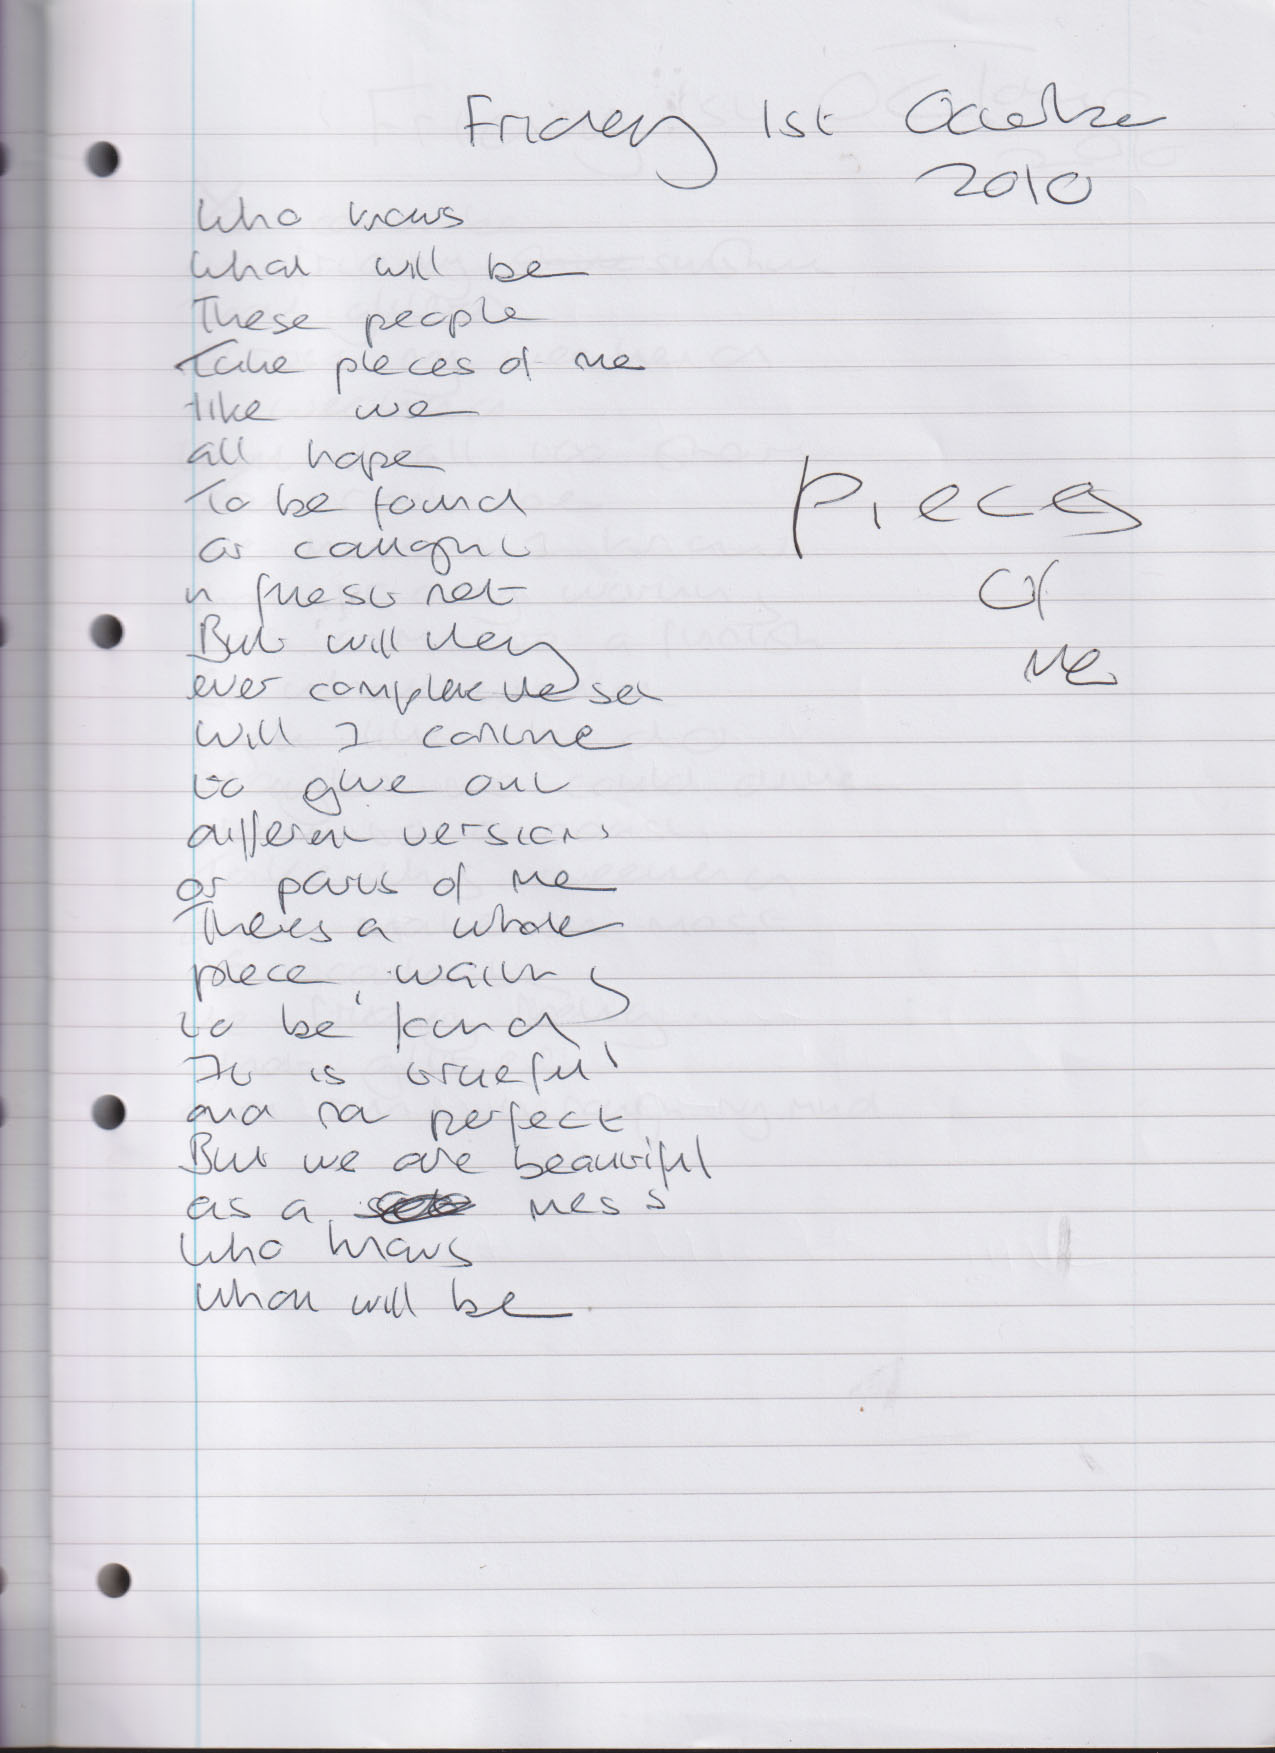 Friday 1st October
2010
Who knows
What will be
These people
Take pieces of me
like we
all hope
To be found
or caught
in net
But will they
ever complete the set
Will I continue
to give out
different versions
or parts of me
Theres a whole
piece, waiting
to be found
It is
and not perfect
But we are beautiful
as a mess
Who knows
What will be
Pieces
Of
Me